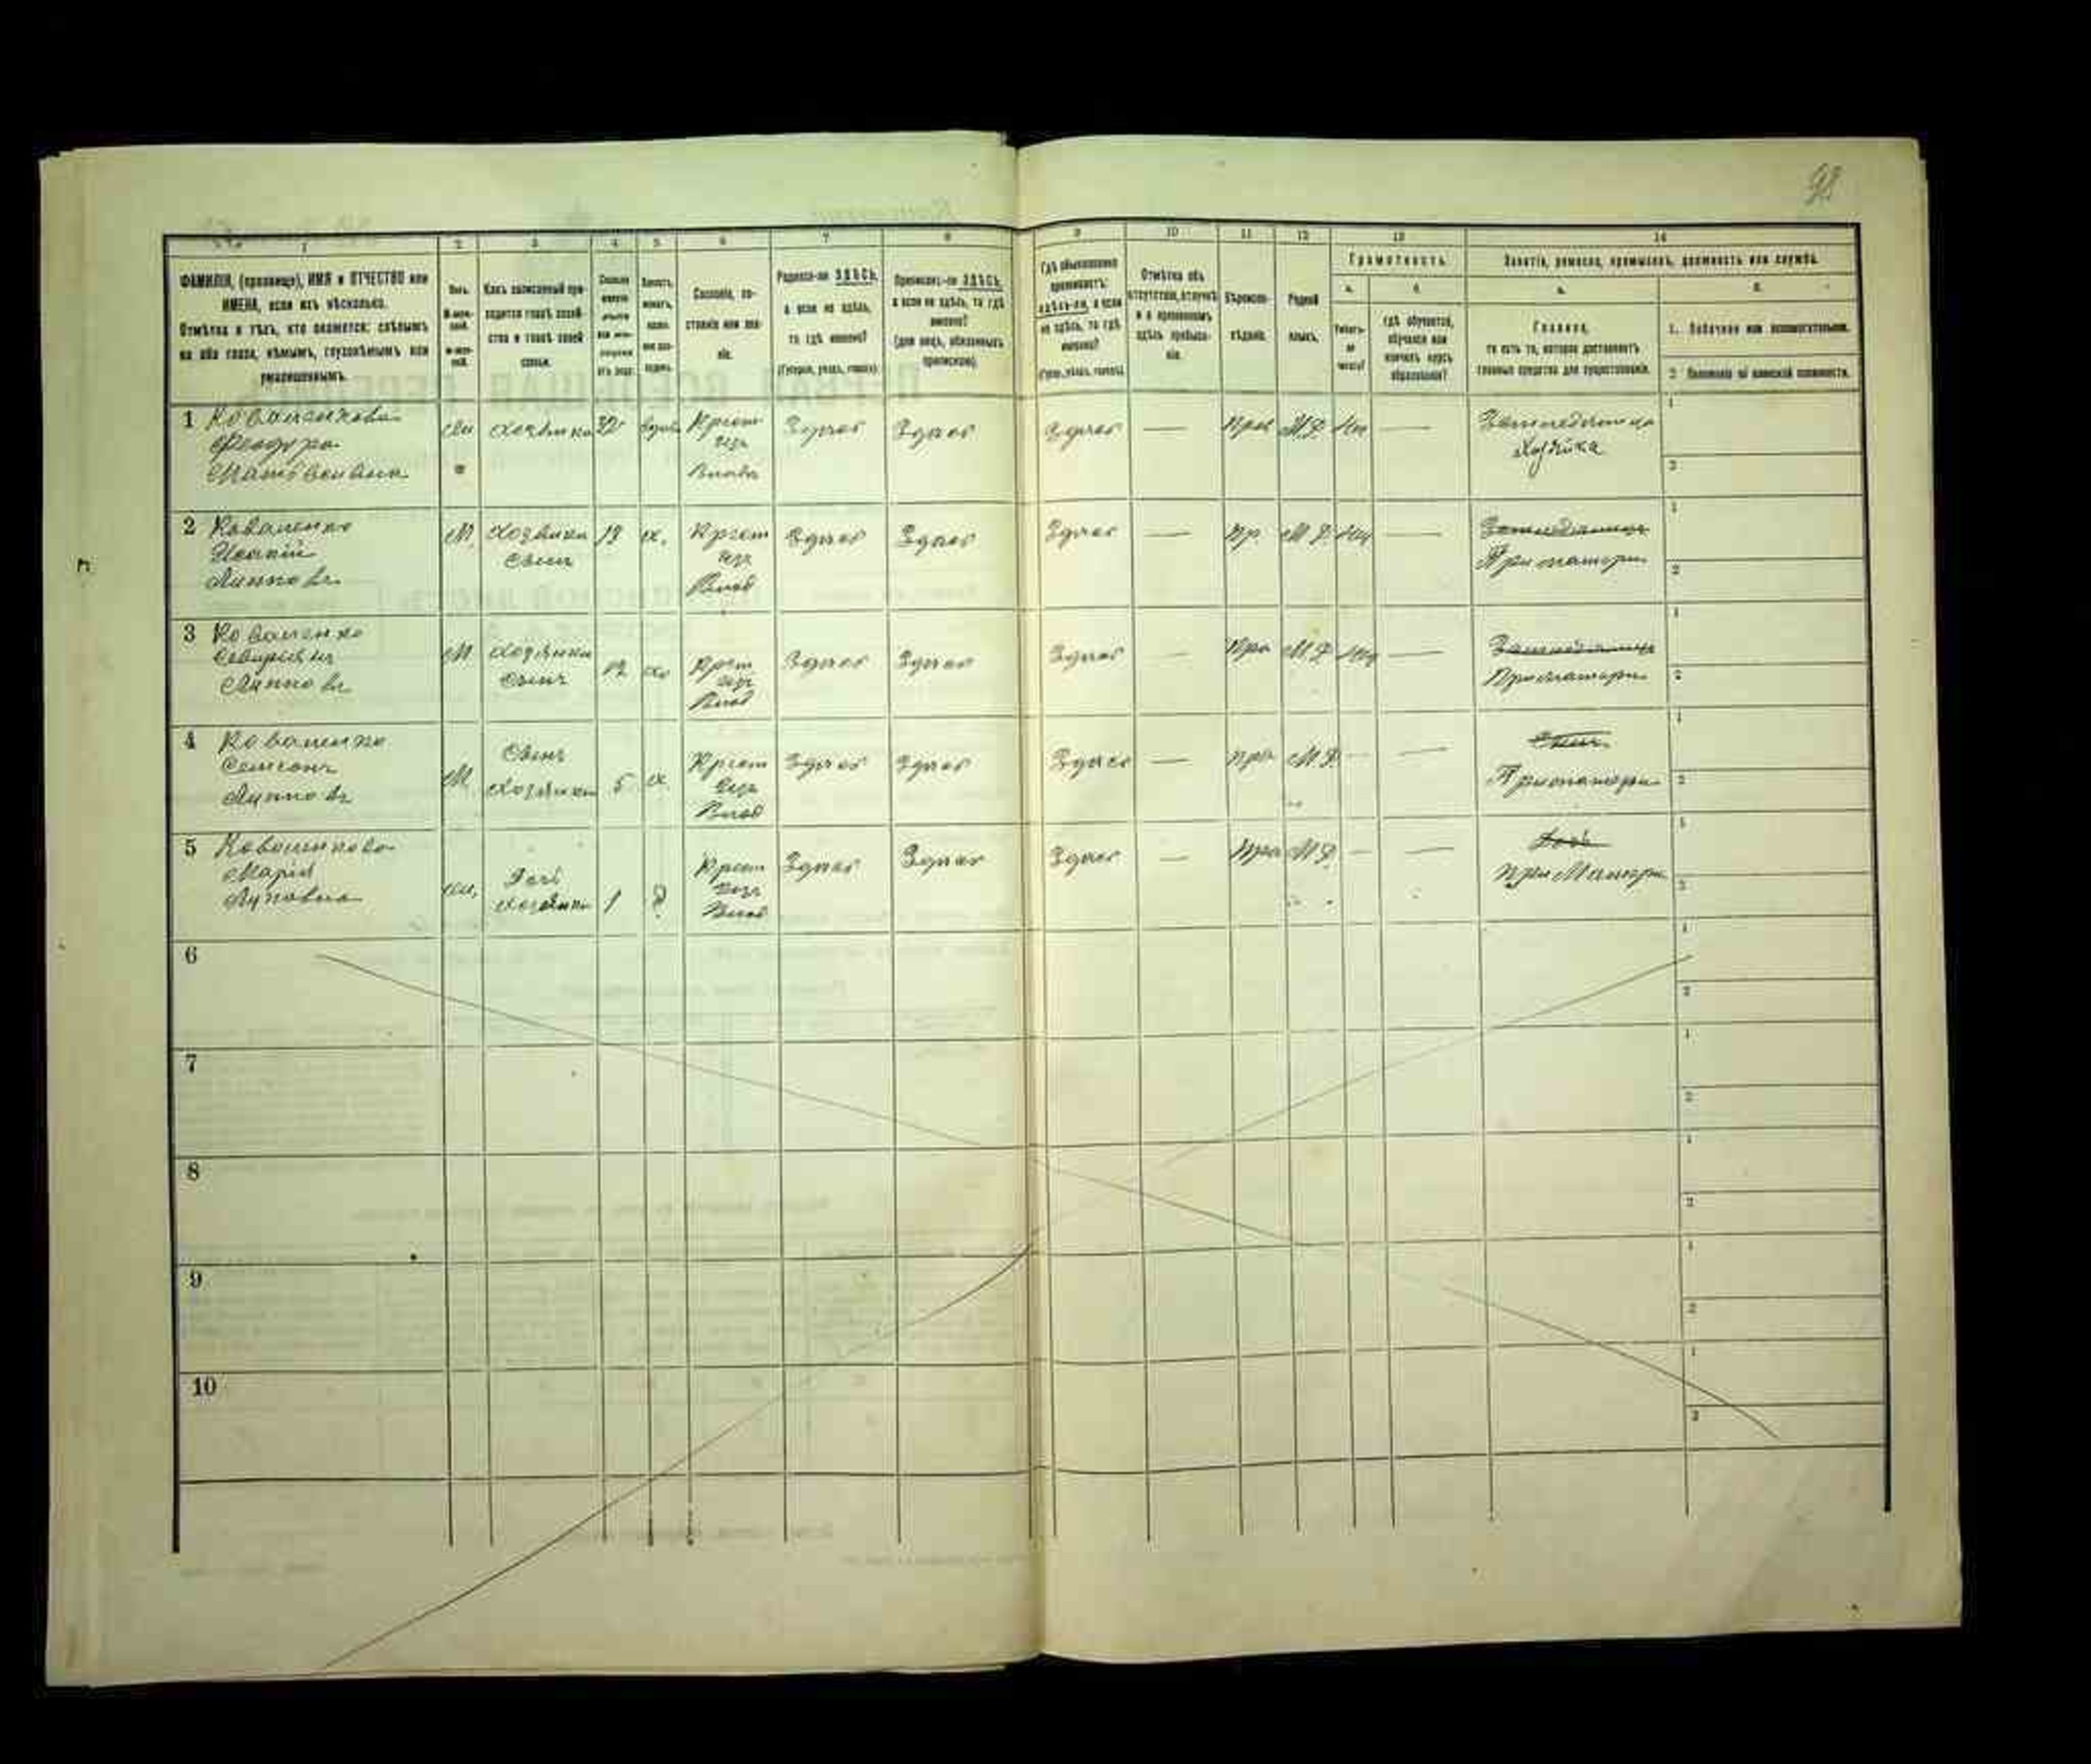 98
1 2 3 4 5 6 7 8 9 10 11 12 13 14
ФАМИЛІЯ, (прозвище), ИМЯ и ОТЧЕСТВО или
ИМЕНА, если ихъ нѣсколько.
Отмѣтка о тѣхъ, кто окажется: слѣпымъ
на оба глаза, нѣмымъ, глухонѣмымъ или
умалишеннымъ.
Полъ.
Какъ записанный при-
ходится главѣ хозяй-
ства и главѣ своей
семьи.
Сословіе, со-
стояніе или зва-
ніе.
Родился-ли ЗДѢСЬ,
а если не здѣсь,
то гдѣ именно?
(Губернія, уѣздъ, городъ).
Приписанъ-ли ЗДѢСЬ,
а если не здѣсь, то гдѣ
именно?
(для лицъ, обязанныхъ
припискою).
Гдѣ обыкновенно
проживаетъ:
здѣсь-ли, а если
не здѣсь, то гдѣ
именно?
(Губ., уѣздъ, городъ).
Отмѣтка объ
отсутствіи, отлучкѣ
и о временномъ
здѣсь пребыва-
ніи.
Вѣроиспо-
вѣданіе.
Родной
языкъ.
Грамотность.
а. б.
Умѣетъ-
ли
читать?
гдѣ обучается,
обучался или
кончилъ курсъ
образованія?
Занятіе, ремесло, промыселъ, должность или служба.
а. б.
Главное,
то есть то, которое доставляетъ
главныя средства для существованія.
1. Побочное или вспомогательное.
2. Положеніе по воинской повинности.
1 Коваленкова
Феодура
Матвеивна
Хозяйка 32 вдова
Крест
изъ
Владъ
Здѣсь Здѣсь Здѣсь — Прав М.Р. Нѣ —
Хозяйка
1
2
2 Коваленко
Лупповъ
М. Хозяйки
Сынъ
19 х.
Крест
изъ
Влад
Здѣсь Здѣсь Здѣсь — Пр. М.Р. —
При матери
1
2
3 Коваленко
Лупповъ
М Хозяйки
Сынъ
12 хо
Крест
изъ
Влад
Здѣсь Здѣсь Здѣсь — Пра М.Р. —
При матери
1
2
4 Коваленко
Семенъ
Лупповъ
М Сынъ
Хозяйки
5 х
Крест
изъ
Влад
Здѣсь Здѣсь Здѣсь — Пра М.Р. — —
Сынъ
При матери
1
2
5 Коваленкова
Марія
Луповна
Дочь
Хозяйки
1 д
Крест
изъ
Влад
Здѣсь Здѣсь Здѣсь — Пра М.Р. — —
Дочь
при Матери
1
2
6
1
2
7
1
2
8
1
2
9
1
2
10
1
2